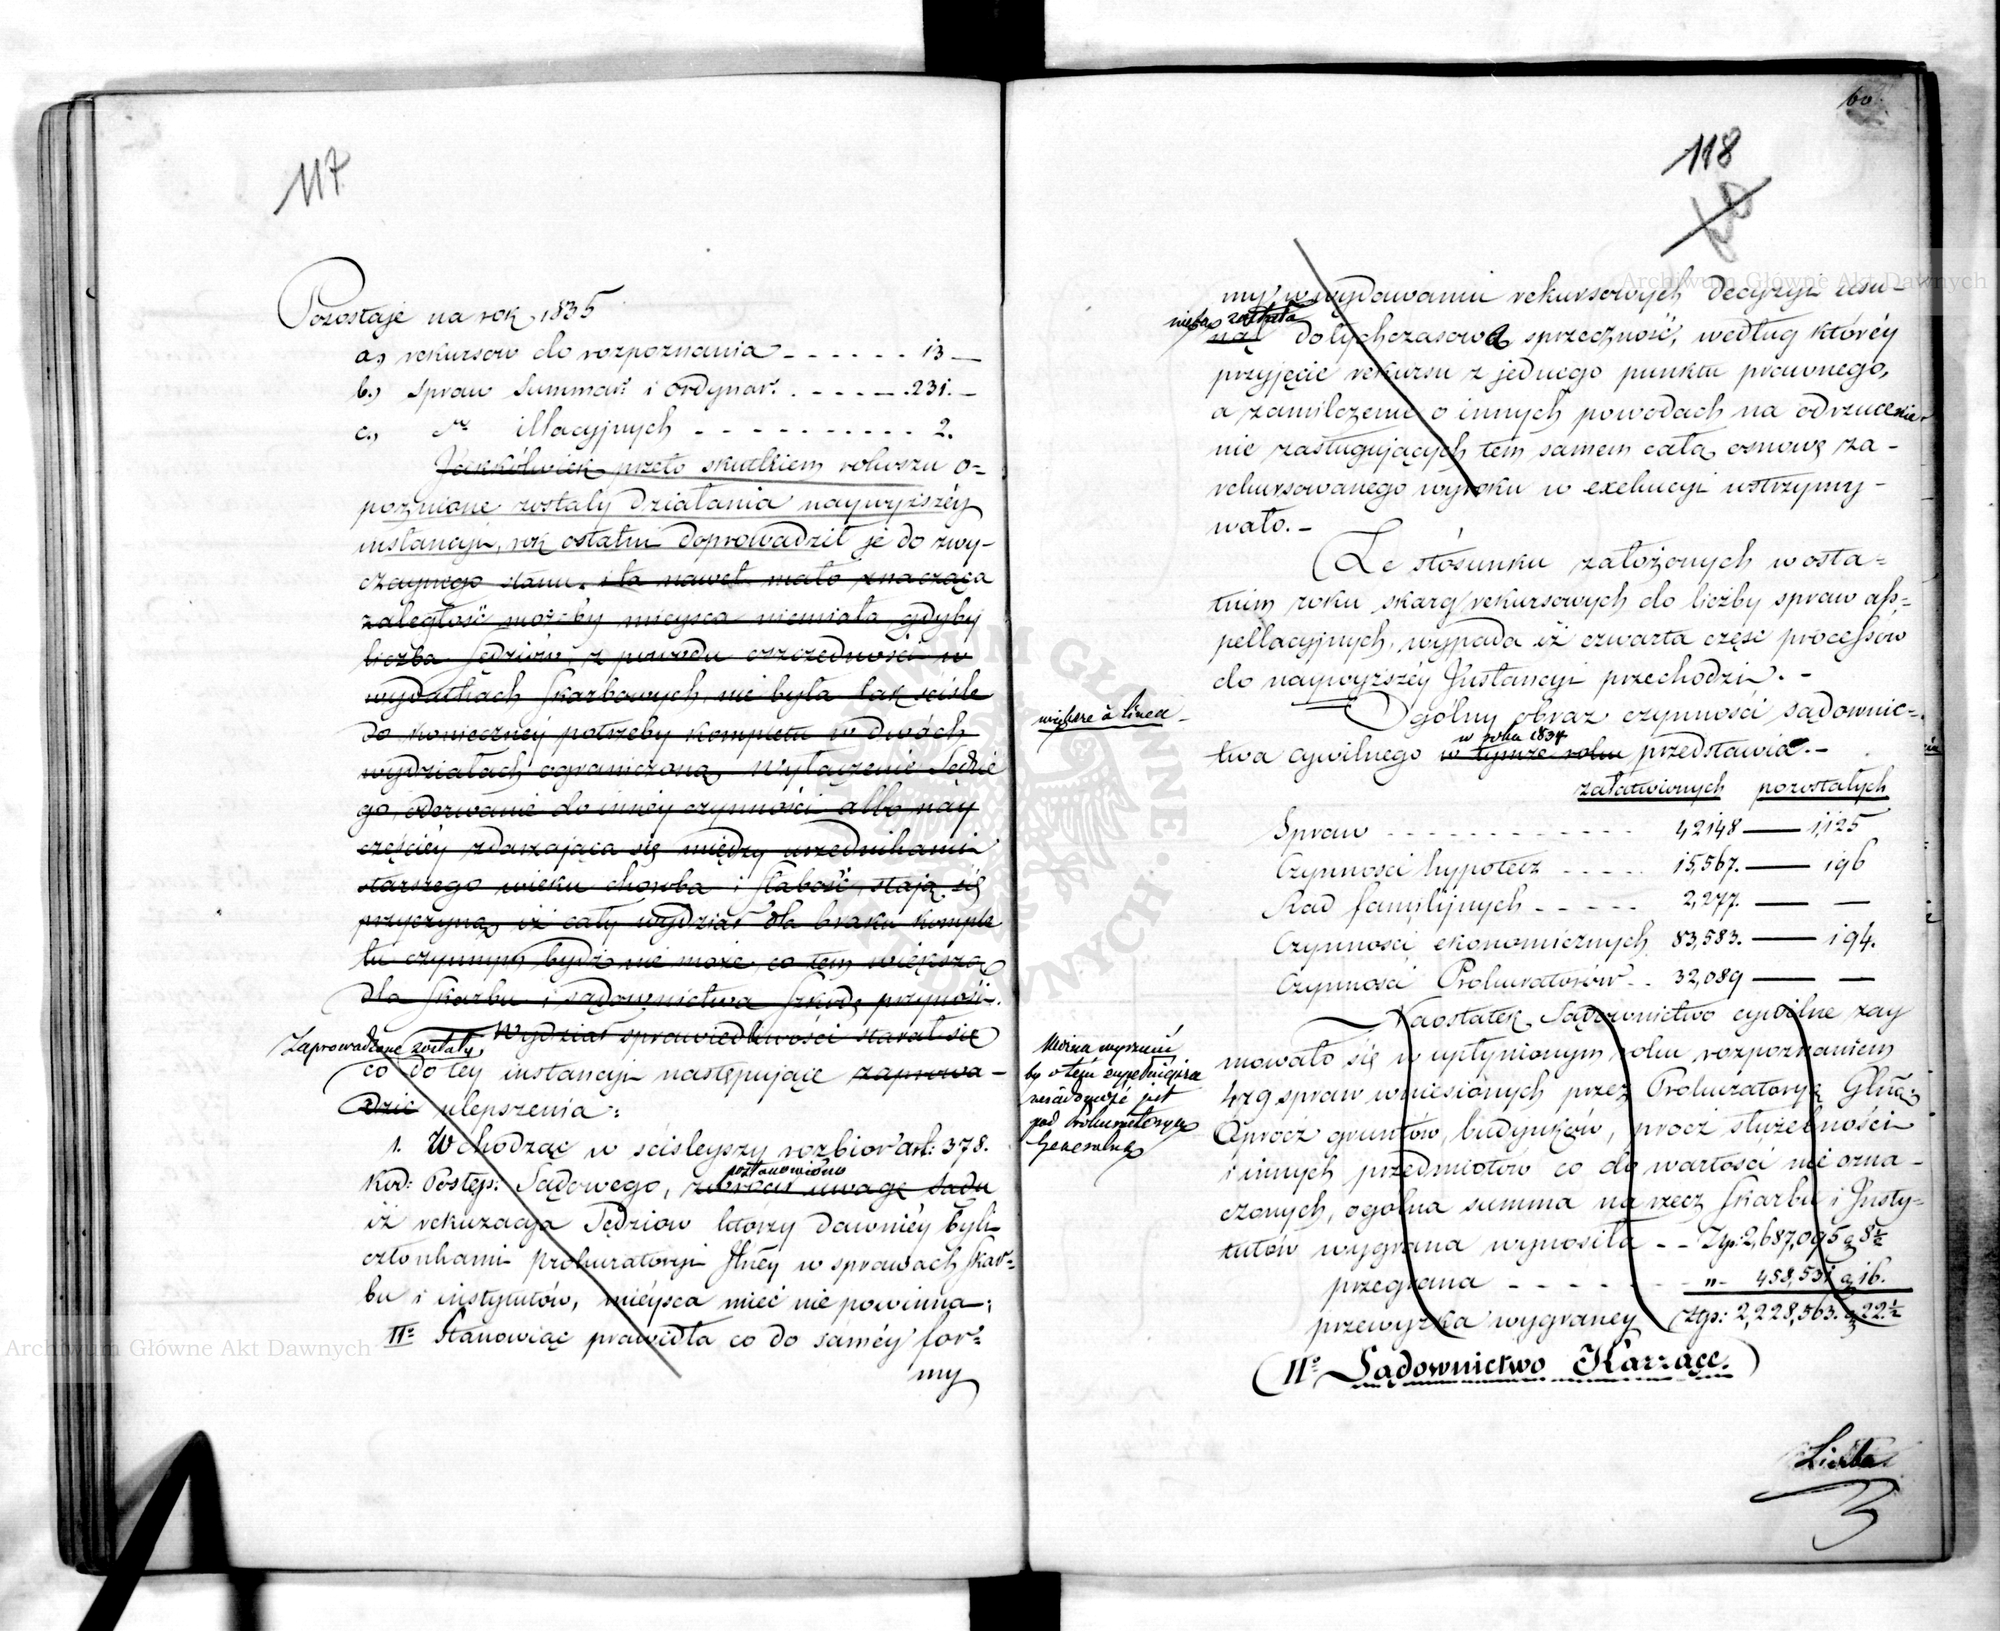 117
Pozostaje na rok 1835
a, rekursow do rozpoznania - - - - - - 13 —
b., spraw Summar: i Ordynar: - - - - - 231. —
c., dto illacyjnych - - - - - - - - - - 2.
Jakkólwiek przeto skutkiem rokoszu o=
poznione zostały działania naywyższéy
instancyi, rok ostatni doprowadził je do zwy-
czaynego stanu. i ta nawet mało znacząca
zaległość możeby mieysca niemiała gdyby
liczba Sędziów, z powodu oszczędności w
wydatkach Skarbowych, nie była tak ściśle
do koniecznéy potrzeby kompletu w dwóch
wydziałach ograniczoną. Wyłączenie Sędzie
go, oderwanie do innéy czynności albo nay
częściéy zdarzająca się między urzędnikami
starszego wieku choroba i słabość, stają się
przyczyną, iż cały wydział dla braku komple
tu czynnym bydź nie może, co tem większą
dla Skarbu i sądownictwa szkodę przynosi.
Wydział sprawiedliwości starał się
Zaprowadzone zostały,
co do tey instancyi następujące zaprowa-
dzić ulepszenia:
1. Wchodząc w ściśleyszy rozbior art: 378.
postanowiono
Kod: Postęp: Sądowego, zwrócić uwagę Sądu
iż rekuzacya Sędziow którzy dawniéy byli
członkami prokuratoryi Jłnéy w sprawach Skar=
bu i instytutów, miéysca mieć nie powinna;
IIe Stanowiąc prawidła co do saméy for=
my
60.
118
60
my w wydawaniu rekursowych decyzyi usu-
niętą została
ną dotychczasowa sprzeczność, według któréy
przyjęcie rekursu z jednego punktu prawnego,
a zamilczenie o innych powodach na odrzucenie
nie zasługujących tem samem całą osnowę za-
rekursowanego wyroku w exekucyi wstrzymy-
wało. -
Ze stósunku założonych w osta=
tnim roku skarg rekursowych do liczby spraw ap=
pellacyjnych, wypada iż czwarta częsc processow
do naywyższéy Instancyi przechodzi. -
większe à linea -
Ogólny obraz czynności sądownic=
w roku 1834
twa cywilnego w tymze roku przedstawia. -
załatwionych pozostałych
Spraw - - - - - - - - - - - - - 42148 — 1,125
Czynnosci hypotecz - - - - - 15,567. — 196
Rad familijnych - - - - - 2,277. — —
Czynnosci ekonomicznych 83,583. — 194.
Czynnosci Prokuratorów - - 32,089 — —
Naostatek Sądownictwo cywilne zay
mowało się w upłynionym roku rozpoznaniem
479 spraw wniesionych przez Prokuratoryą Głną;
Oprócz gruntów, budynków, prócz służebności
i innych przedmiotów co do wartości nie ozna-
czonych, ogolna summa na rzecz Skarbu i Insty-
tutów wygrana wynosiła - - Złp: 2,687,095 g 8½
przegrana - - - - - - - - „ - 458,531 g 16.
przewyżka wygraney Złp: 2,228,563. g 22½
Można
by o tem
pod Prokuratoryą
Generalną
IIe Sądownictwo Karzące.
Liczba